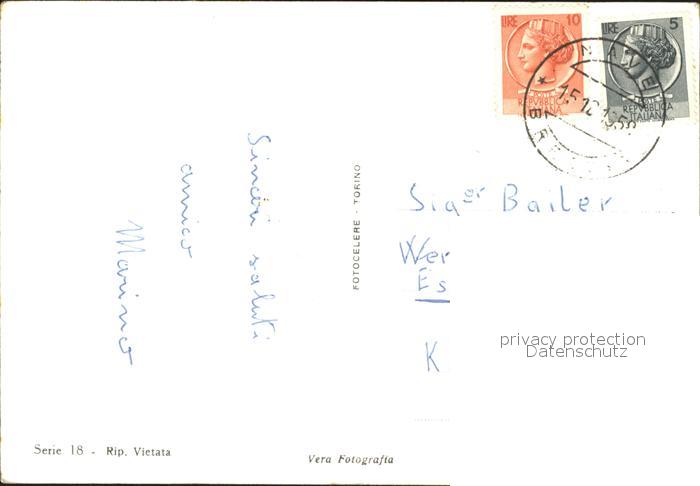 LIRE 10
POSTE
REPVBBLICA
ITALIANA
LIRE 5
POSTE
REPVBBLICA
ITALIANA
NAVE
15.12.1955
Sinceri saluti
amico
Marino
FOTOCELERE - TORINO
Sig.er Bailer
Wer
Es
K
privacy protection
Datenschutz
Serie 18 - Rip. Vietata
Vera Fotografia